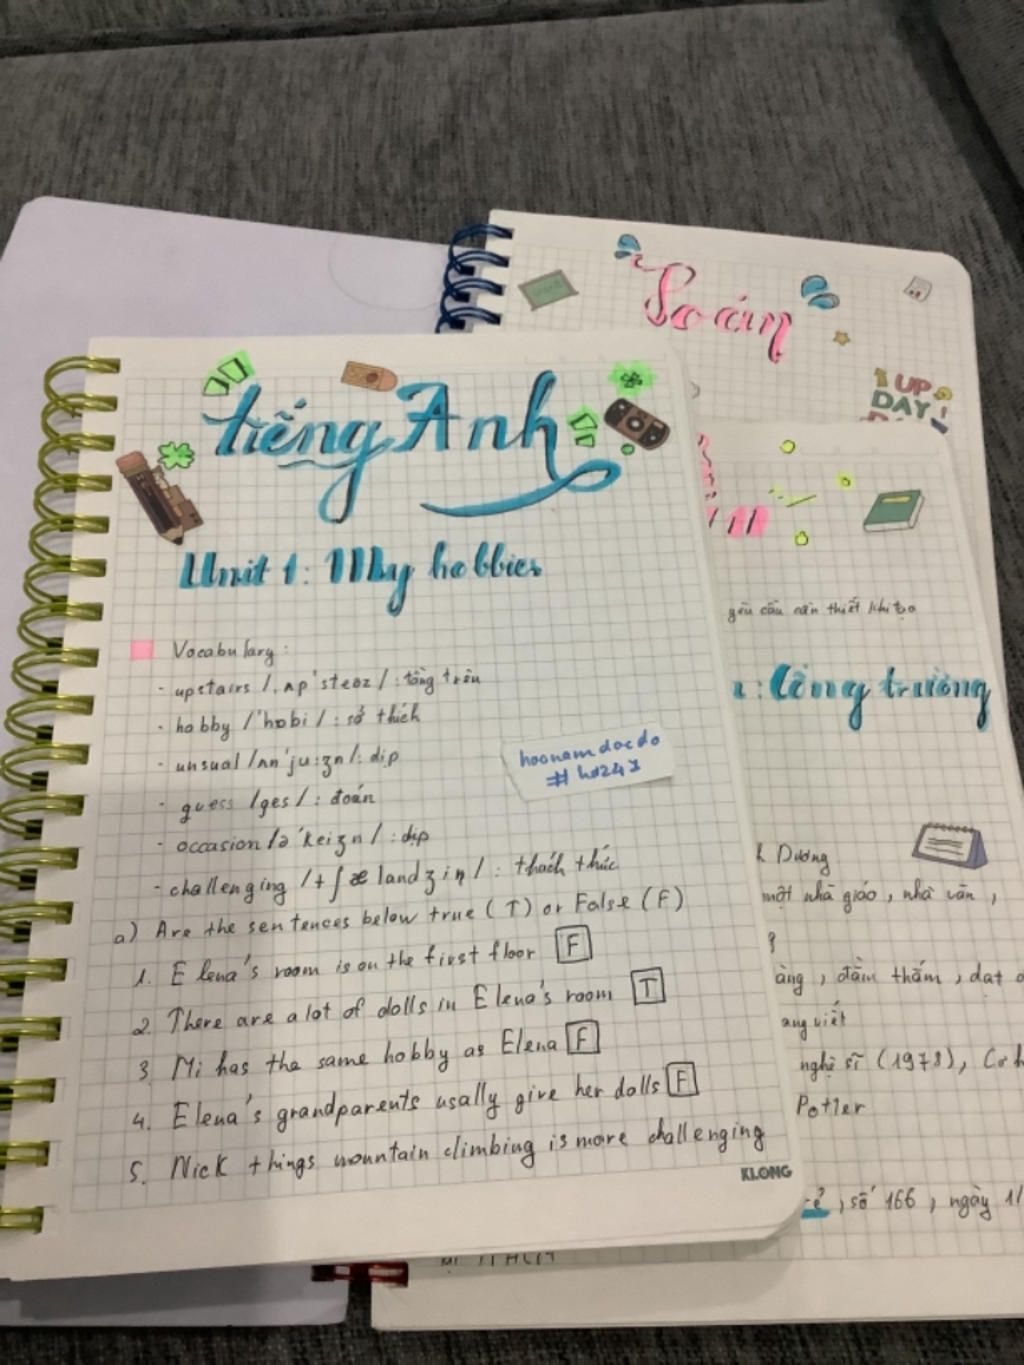 Toán
UP
DAY
tiếng Anh
Unit 1: My hobbies
Vocabulary:
- upstairs /ˌʌp'steəz/: tầng trên
- hobby /'hɒbi/: sở thích
- unsual /ʌn'ju:ʒn/: dịp
- guess /ges/: đoán
- occasion /ə'keiʒn/: dịp
- challenging /tʃælandʒiŋ/: thách thức
hoonamdacdo
#hd247
a) Are the sentences below true (T) or False (F)
1. Elena's room is on the first floor F
2. There are a lot of dolls in Elena's room T
3. Mi has the same hobby as Elena F
4. Elena's grandparents usally give her dolls F
5. Nick things mountain climbing is more challenging
KLONG
yêu cầu cần thiết khi tạo
: Cổng trường
Dương
một nhà giáo, nhà văn,
àng, đằm thắm, dạt
ang viết
nghệ sĩ (1978), Cơ h
Potter
, số 166, ngày 1/